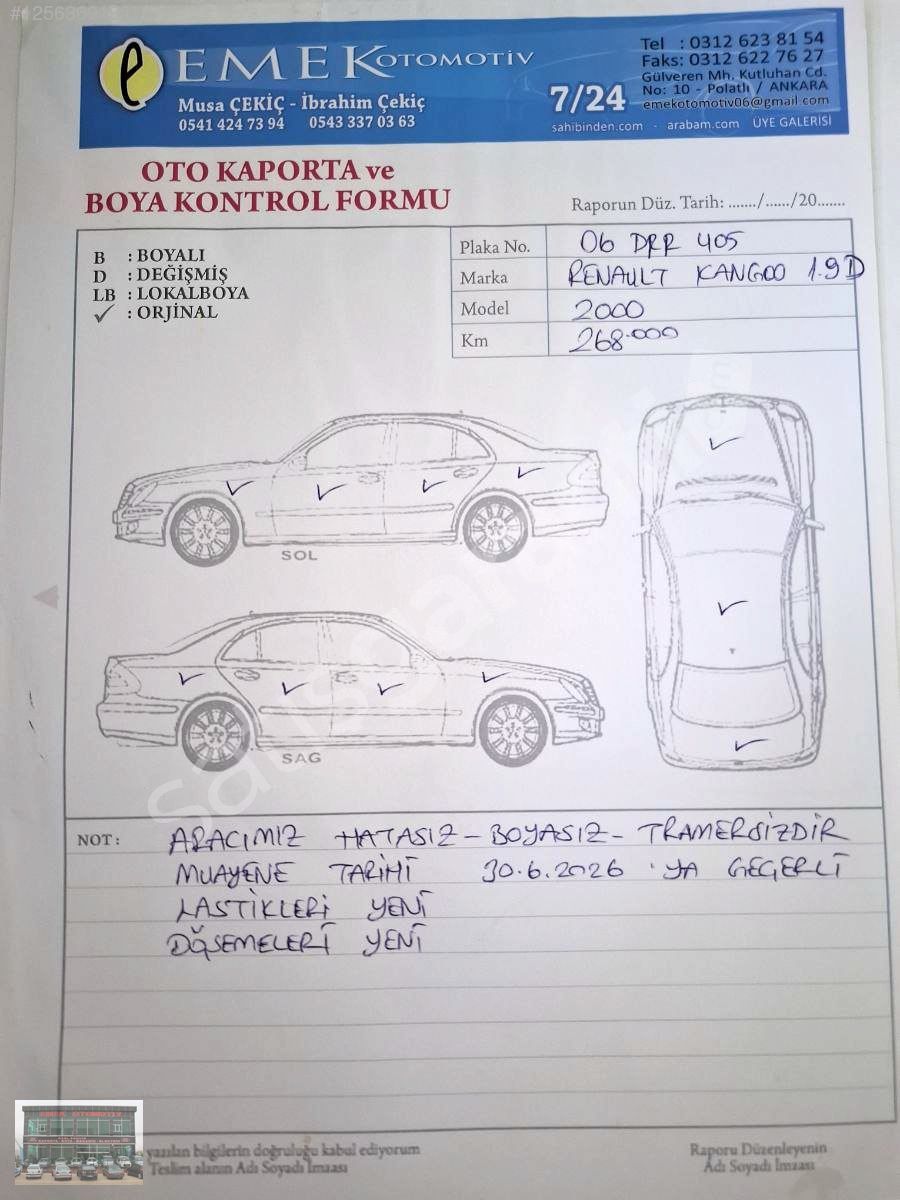 e EMEK OTOMOTİV
Musa ÇEKİÇ - İbrahim Çekiç
0541 424 73 94 0543 337 03 63
7/24
Tel : 0312 623 81 54
Faks: 0312 622 76 27
Gülveren Mh. Kutluhan Cd.
No: 10 - Polatlı / ANKARA
emekotomotiv06@gmail.com
sahibinden.com - arabam.com ÜYE GALERİSİ
OTO KAPORTA ve
BOYA KONTROL FORMU
Raporun Düz. Tarih: ....../....../20......
B : BOYALI
D : DEĞİŞMİŞ
LB : LOKALBOYA
✓ : ORJİNAL
Plaka No. 06 DRR 405
Marka RENAULT KANGOO 1.9 D
Model 2000
Km 268.000
SOL
SAG
NOT: ARACIMIZ HATASIZ - BOYASIZ - TRAMERSİZDİR
MUAYENE TARİHİ 30.6.2026 'YA GEÇERLİ
LASTİKLERİ YENİ
DÖŞEMELERİ YENİ
EMEK OTOMOTİV
yazılan bilgilerin doğruluğu kabul ediyorum
Teslim alanın Adı Soyadı İmzası
Raporu Düzenleyenin
Adı Soyadı İmzası